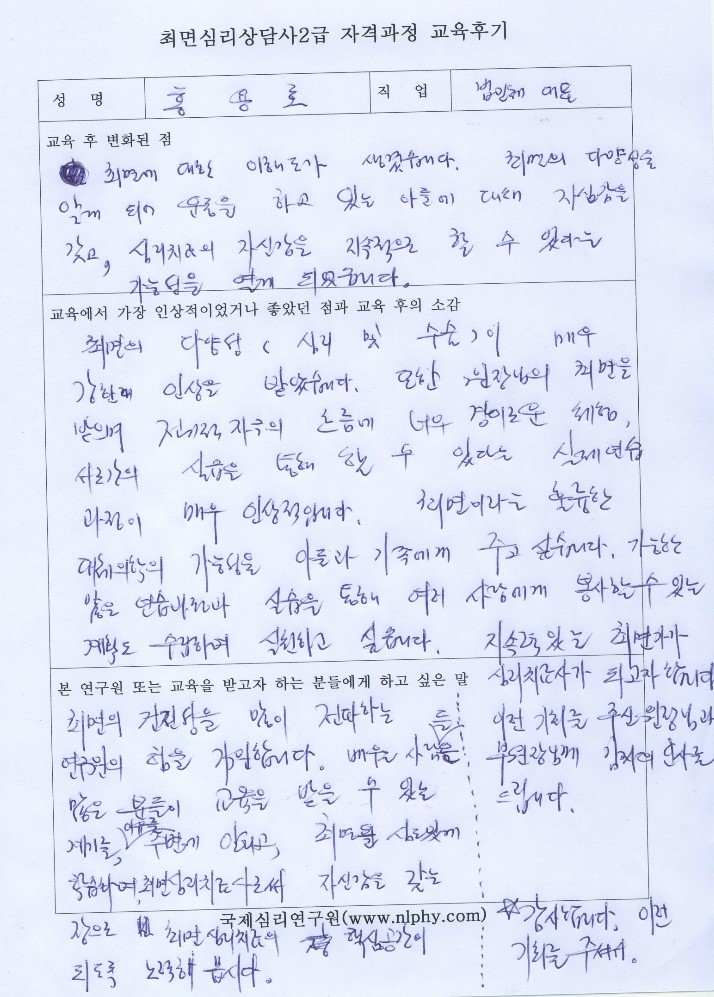 최면심리상담사2급 자격과정 교육후기
성 명 홍 용 로 직 업 법인체 대표
교육 후 변화된 점
최면에 대한 이해도가 생겼습니다. 최면의 다양성을
알게 되어 운동을 하고 있는 아들에 대해 자신감을
갖고, 심리치료의 자신감을 지속적으로 할 수 있다는
가능성을 열게 되었습니다.
교육에서 가장 인상적이었거나 좋았던 점과 교육 후의 소감
최면의 다양성 (심리 및 수술)이 매우
강한 인상을 받았습니다. 또한, 원장님의 최면을
받으며 전기적 자극의 흐름에 너무 경이로운 체험,
실습을 통해 할 수 있다는 실제연습
과정이 매우 인상적입니다. 최면이라는 훌륭한
대체의학의 가능성을 아들과 가족에게 주고 싶습니다. 가능한
많은 연습 실습을 통해 여러 사람에게 봉사할 수 있는
계획도 수립하여 실천하고 싶습니다. 지속력있는 최면가가
심리치료사가 되고자 합니다
이런 기회를 주신 원장님과
부원장님께 감사의 인사를
드립니다.
본 연구원 또는 교육을 받고자 하는 분들에게 하고 싶은 말
최면의 건전성을 많이 전파하는
연구원의 힘을 기원합니다. 배우는 사람들
많은 분들이 교육을 받을 수 있는
계기를, 주변에 알리고, 최면을 심도있게
학습하여, 최면심리치료사로써 자신감을 갖는
장으로 최면심리치료의 핵심공간이
되도록 노력해 봅시다.
국제심리연구원(www.nlphy.com)
*감사합니다. 이런
기회를 주셔서.